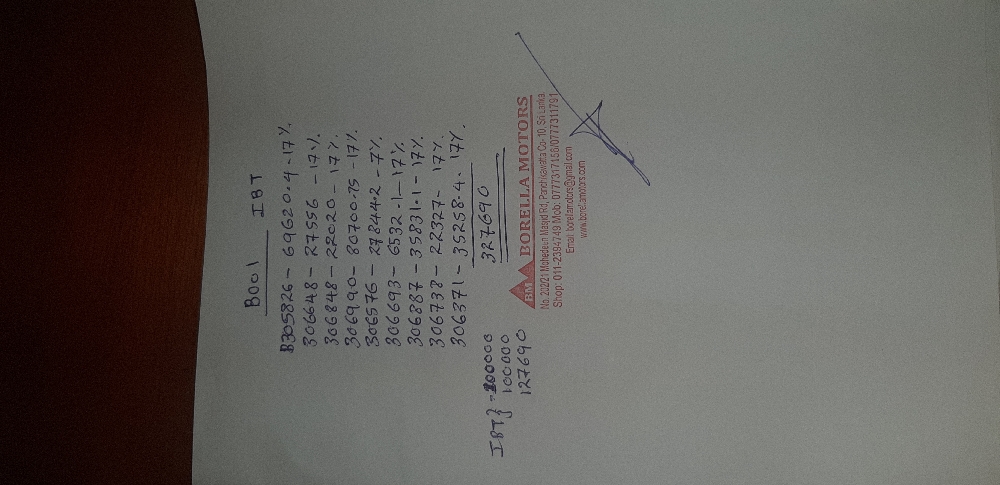 B001 IBT
B305826 - 69620.4 - 17%
306648 - 27556 - 17%
306848 - 22020 - 17%
306990 - 80700.75 - 17%
306576 - 27844.2 - 7%
306693 - 6532.1 - 17%
306887 - 35831.1 - 17%
306738 - 22327 - 17%
306371 - 35258.4 - 17%
327690
IBT} - 100000
100000
127690
BM BORELLA MOTORS
No. 202/21 Mohedeen Masjid Rd, Panchikawatta Co- 10, Sri Lanka.
Shop: 011-2384749 Mob: 0777317156/0777311791
Email: borellamotors@gmail.com
www.borellamotors.com